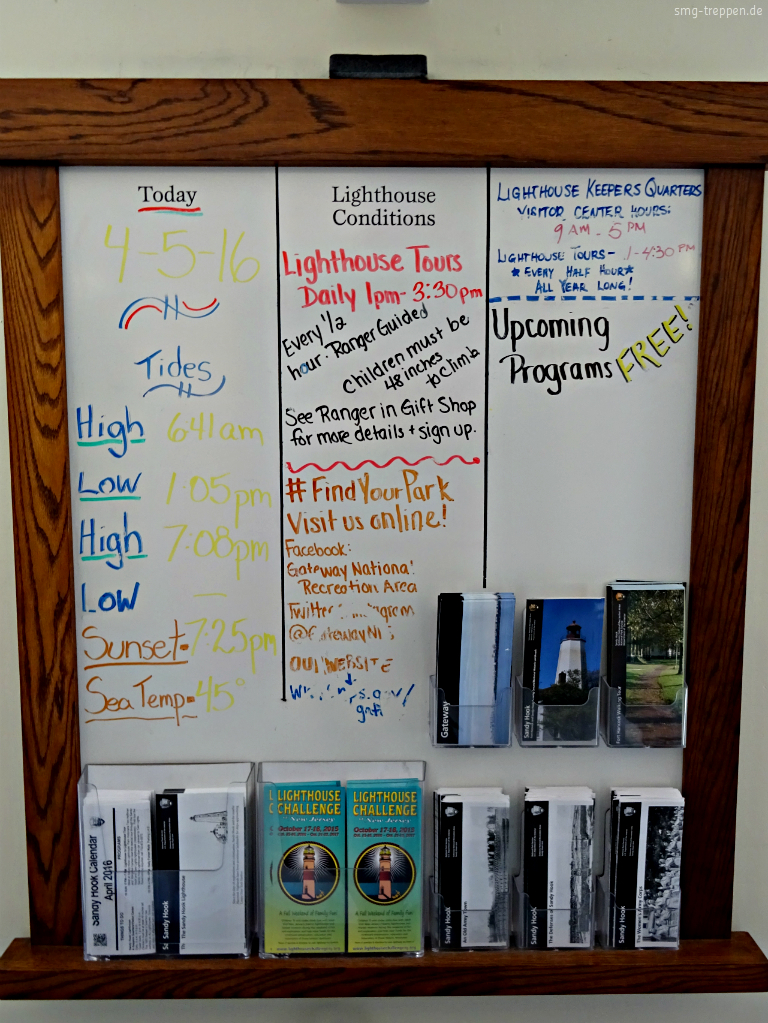 smg-treppen.de
Today
4-5-16
Tides
High 641am
Low 1:05pm
High 7:08pm
Low —
Sunset- 7:25pm
Sea Temp- 45°
Lighthouse
Conditions
Lighthouse Tours
Daily 1pm- 3:30pm
Every 1/2
hour. Ranger Guided
Children must be
48 inches
to climb
See Ranger in Gift Shop
for more details + sign up.
#FindYourPark
Visit us online!
Facebook:
Gateway National
Recreation Area
Twitter
OUR WEBSITE
LIGHTHOUSE KEEPERS QUARTERS
VISITOR CENTER HOURS:
9 AM - 5 PM
LIGHTHOUSE TOURS- 1-4:30 PM
*EVERY HALF HOUR*
ALL YEAR LONG!
Upcoming
Programs FREE!
Gateway
Sandy Hook
Fort Hancock Walking Tour
Sandy Hook Calendar
April 2016
Sandy Hook
The Sandy Hook Lighthouse
LIGHTHOUSE
CHALLENGE
of New Jersey
October 17-18, 2015
A Full Weekend of Family Fun!
LIGHTHOUSE
CHALLENGE
of New Jersey
October 17-18, 2015
A Full Weekend of Family Fun!
Sandy Hook
An Old Army Town
Sandy Hook
The Defenses of Sandy Hook
Sandy Hook
The Women's Army Corps